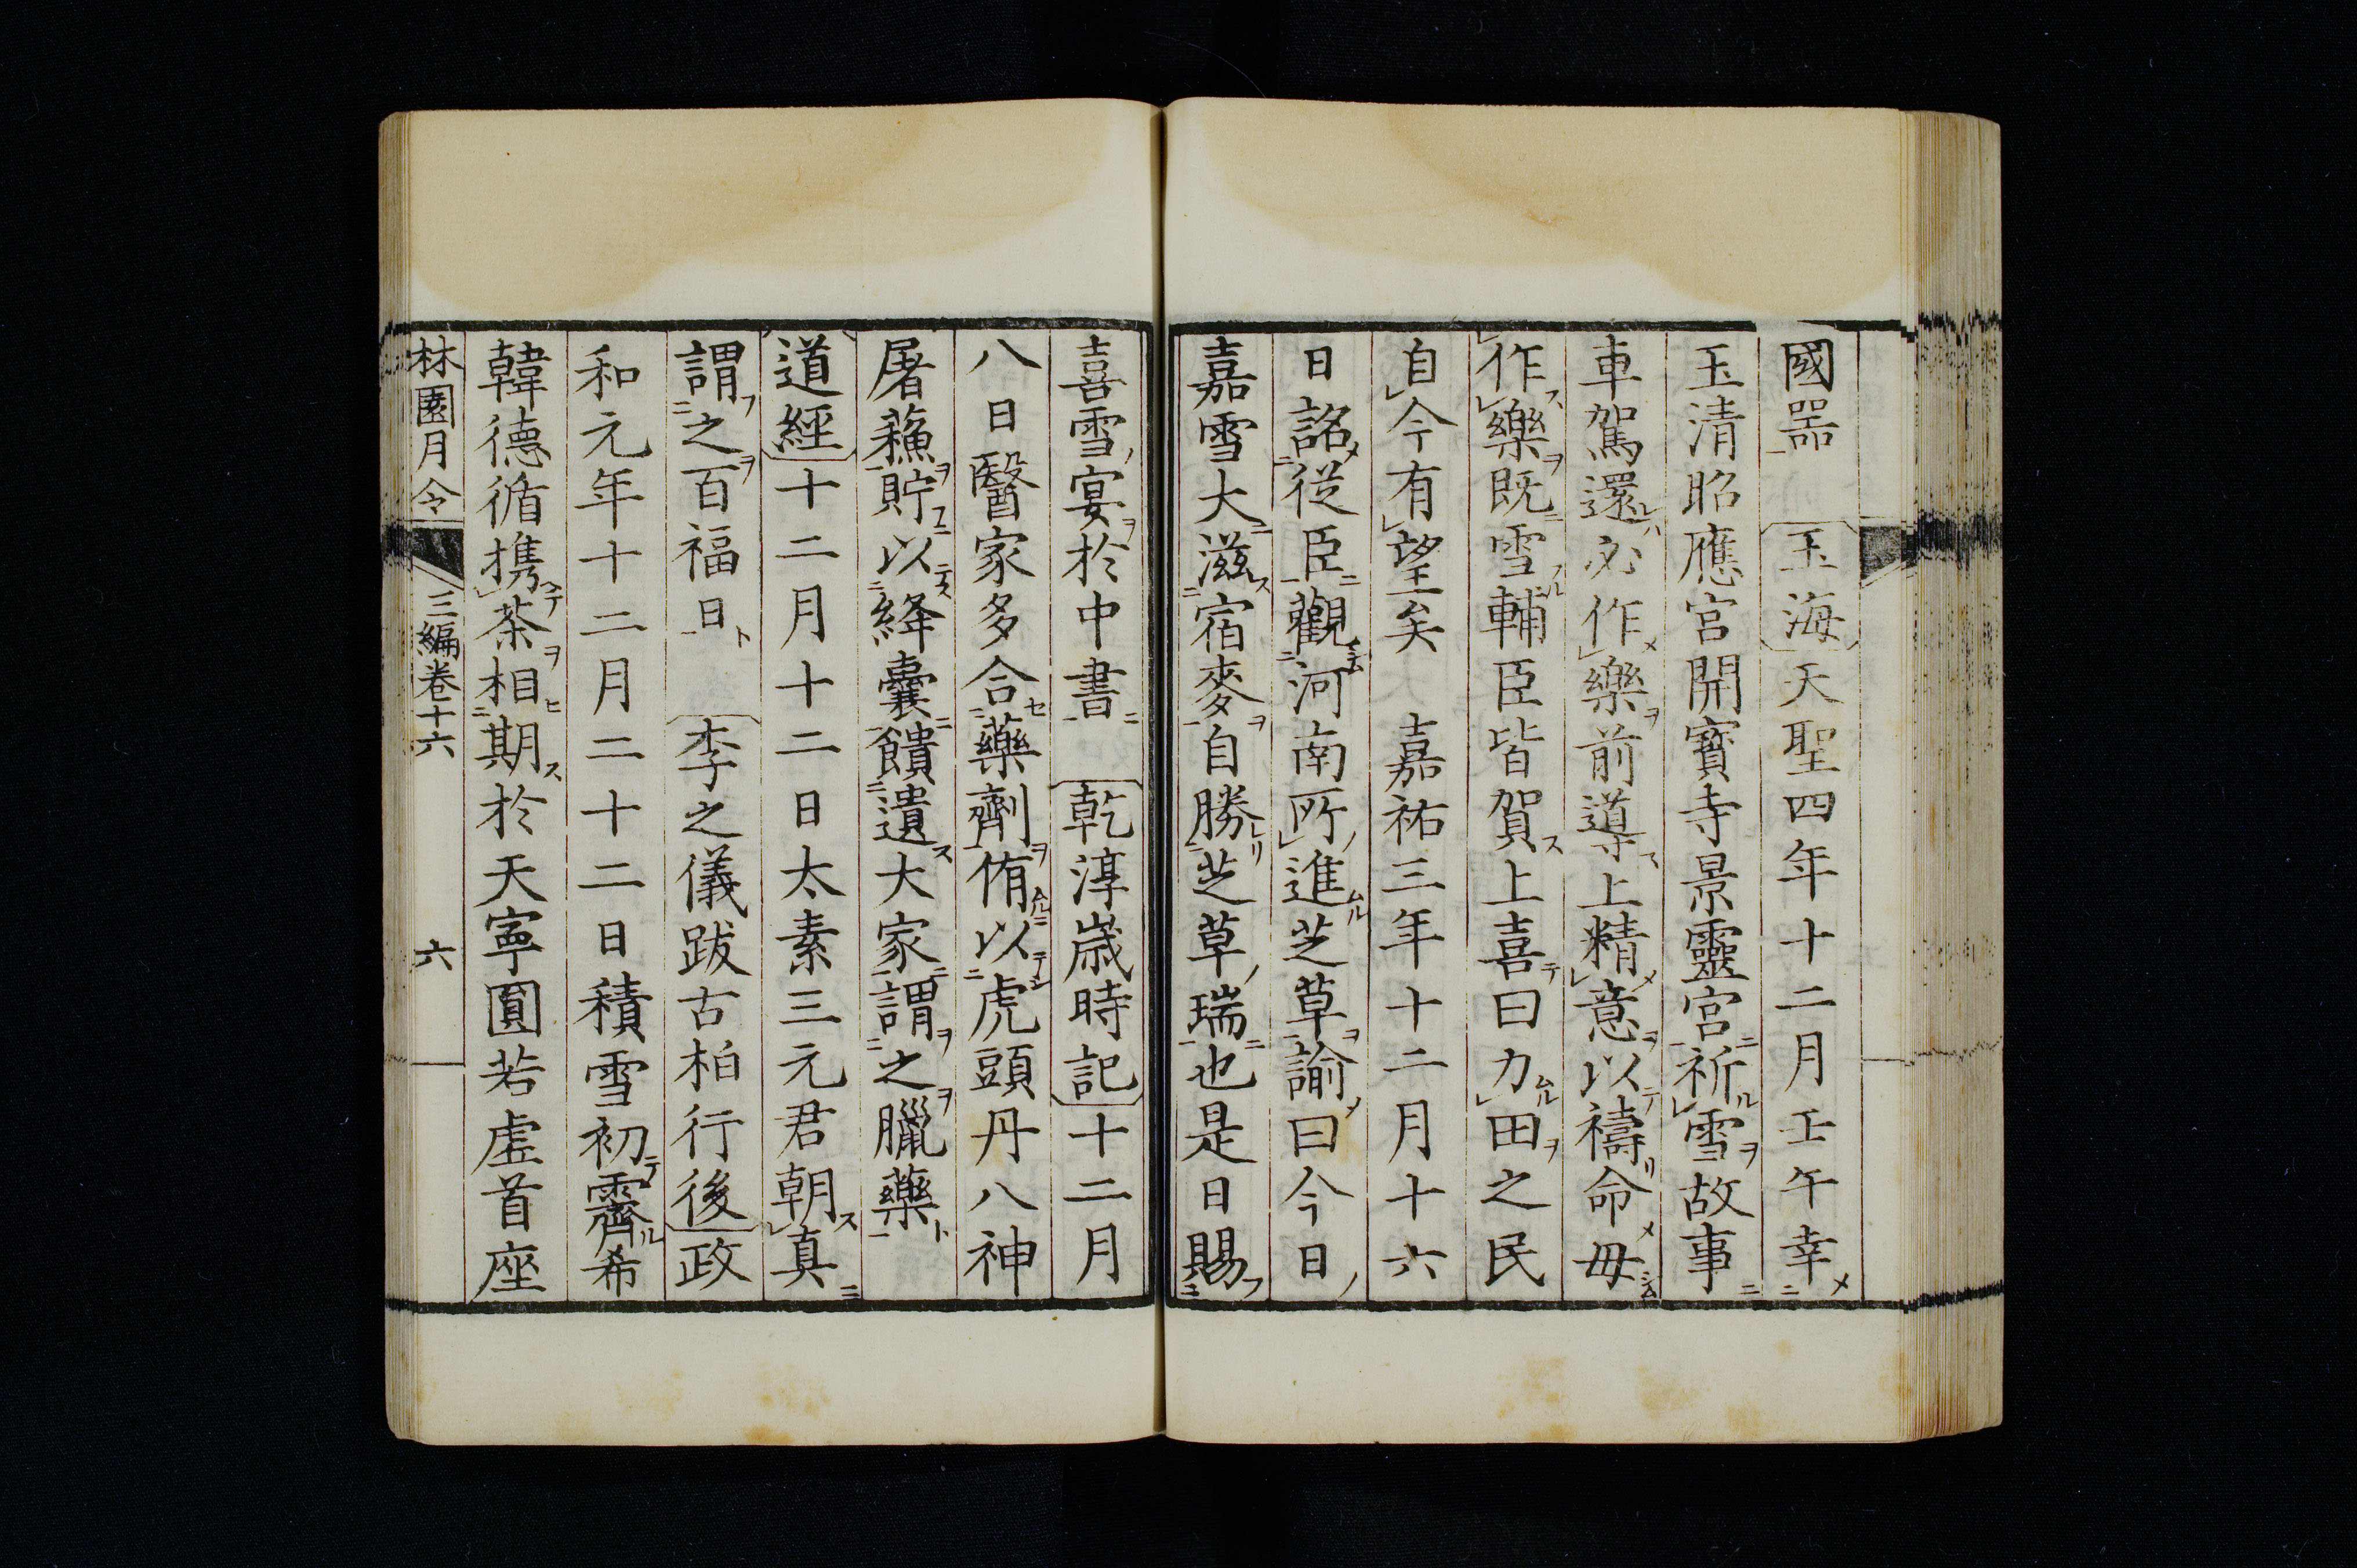 國噐　玉海天聖四年十二月壬午幸
玉清昭應宮開寳寺景靈宮祈雪故事
車駕還必作樂前導上精意以禱命毋
作樂既雪輔臣皆賀上喜曰力田之民
自今有望矣　嘉祐三年十二月十六
日詔従臣觀河南所進芝草諭曰今日
嘉雪大滋宿麥自勝芝草瑞也是日賜
喜雪宴於中書　乾淳歲時記十二月
八日醫家多合藥劑侑以虎頭丹八神
屠蘓貯以絳囊饋遺大家謂之臘藥
道經十二月十二日太素三元君朝真
謂之百福日　李之儀跋古柏行後政
和元年十二月二十二日積雪初霽希
韓德循携茶相期於天寧圓若虛首座
林園月令　三編卷十六　六